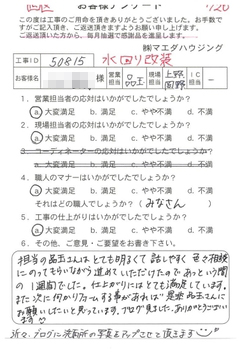 お客様アンケート
この度は工事のご用命を頂きありがとうございました。お手数で
すがご記入頂き、ご返送頂きますようお願い申し上げます。
ご返送頂いた方から、毎月抽選で感謝品を進呈します。
㈱マエダハウジング
工事ID 50815 水回り改装
お客様名 様 営業担当 品工 現場担当 上野 IC担当
1. 営業担当者の応対はいかがでしたでしょうか?
a 大変満足 b. 満足 c. やや不満 d. 不満
2. 現場担当者の応対はいかがでしたでしょうか?
a 大変満足 b. 満足 c. やや不満 d. 不満
3. コーディネーターの応対はいかがでしたでしょうか?
a. 大変満足 b. 満足 c. やや不満 d. 不満
4. 職人の応対はいかがでしたでしょうか?
a 大変満足 b. 満足 c. やや不満 d. 不満
それはどの職人でしょうか?(みなさん)
5. 工事の仕上がりはいかがでしたでしょうか?
a 大変満足 b. 満足 c. やや不満 d. 不満
6. その他、ご意見・ご要望をお書き下さい。
担当の品工さんはとても明るくて話しやすく色々相談
にのってもらいながら進めていただけたのであっという間
の1週間でした。仕上がりにはとても満足しています。
また次に何かリフォームする事があれば是非品工さんに
お願いしたいと思っています。ブログ見ました。ありがとうござい
ます
近々、ブログに洗面所の写真をアップさせて頂きます